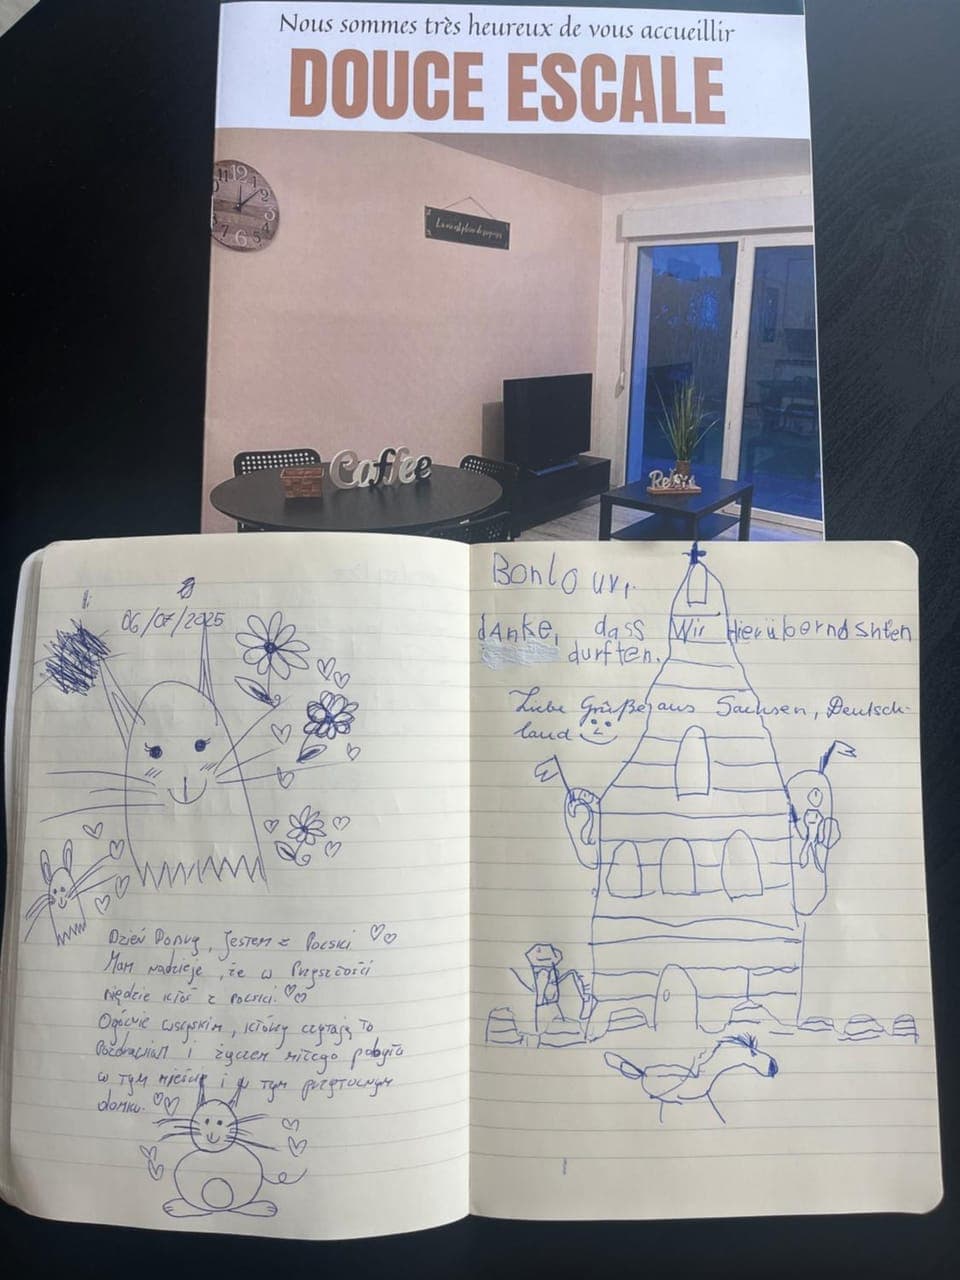 Nous sommes très heureux de vous accueillir
DOUCE ESCALE
12
11
1
2
3
4
5
6
7
Coffee
Relax
06/07/2025
Dzień Dobry, Jestem z Polski
Mam nadzieje, że w Przyszłości
będzie ktoś z Polski.
Ogólnie wszyskim, którzy czytają to
Pozdrawiam i życzem miłego pobytu
w tym mieście i w tym przytulnym
domku.
Bonlour,
dAnke, dass Wir Hierübernashten
durften.
Liebe Grüße aus Sachsen, Deutsch-
land